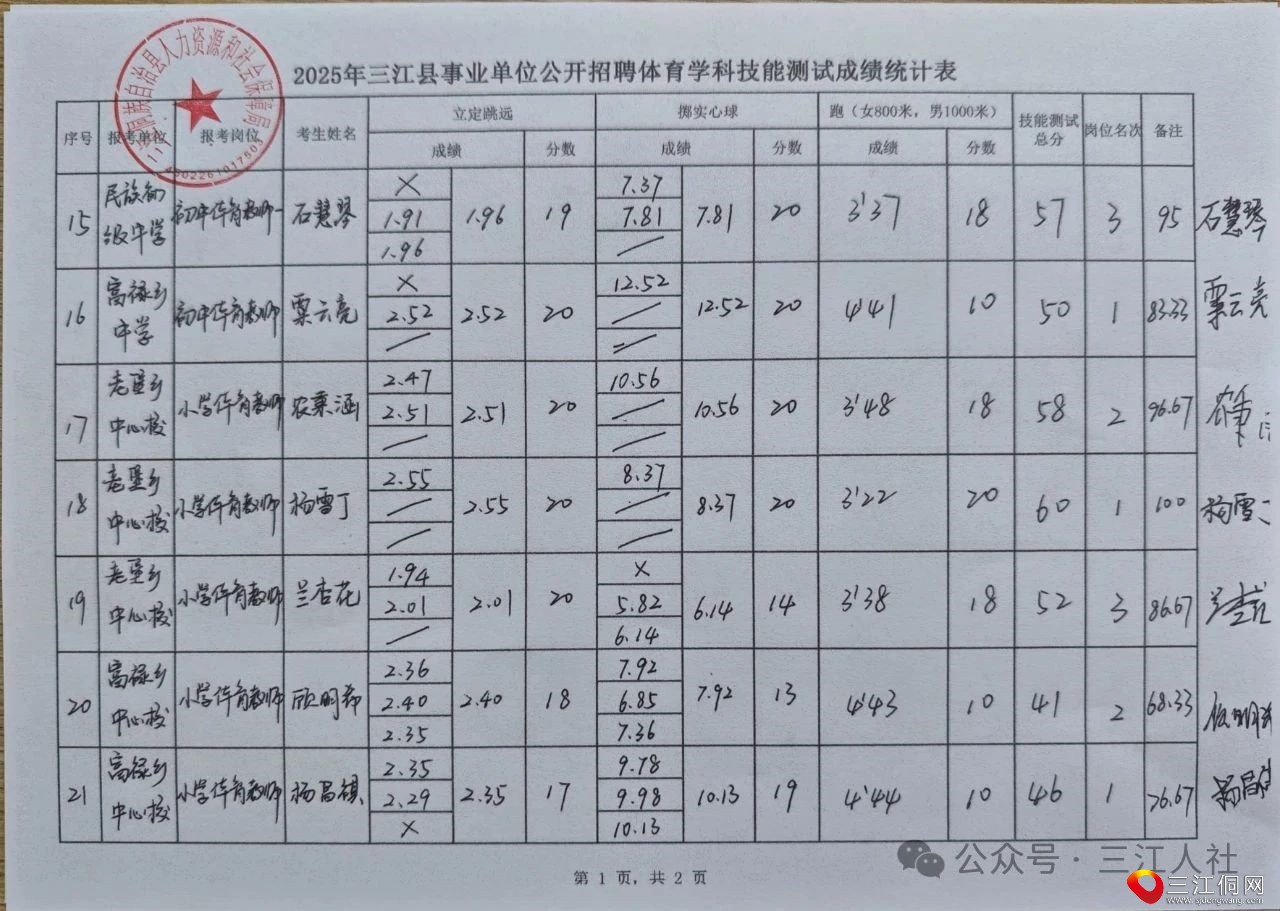 2025年三江县事业单位公开招聘体育学科技能测试成绩统计表
序号 报考单位 报考岗位 考生姓名 立定跳远 掷实心球 跑（女800米，男1000米） 技能测试总分 岗位名次 备注
成绩 分数 成绩 分数 成绩 分数
15 民族初级中学 初中体育教师一 石慧琴 × 1.91 1.96 1.96 19 7.37 7.81 / 7.81 20 3'37 18 57 3 95 石慧琴
16 富禄乡中学 初中体育教师 粟云亮 × 2.52 / 2.52 20 12.52 / / 12.52 20 4'41 10 50 1 83.33 粟云亮
17 老堡乡中心校 小学体育教师 农秉涵 2.47 2.51 / 2.51 20 10.56 / / 10.56 20 3'48 18 58 2 96.67
18 老堡乡中心校 小学体育教师 杨雪丁 2.55 / / 2.55 20 8.37 / / 8.37 20 3'22 20 60 1 100 杨雪
19 老堡乡中心校 小学体育教师 兰杏花 1.94 2.01 / 2.01 20 × 5.82 6.14 6.14 14 3'38 18 52 3 86.67 兰杏花
20 富禄乡中心校 小学体育教师 明 2.36 2.40 2.35 2.40 18 7.92 6.85 7.36 7.92 13 4'43 10 41 2 68.33
21 富禄乡中心校 小学体育教师 杨昌 2.35 2.29 × 2.35 17 9.78 9.98 10.13 10.13 19 4'44 10 46 1 76.67 杨昌
第 1 页，共 2 页
侗族自治县人力资源和社会保障局
4502261017503
公众号 · 三江人社
三江侗网
www.sjdongwang.com